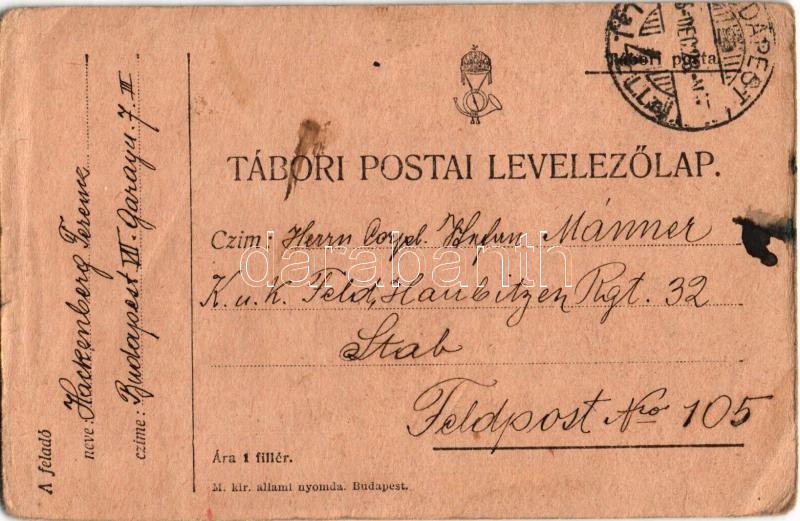 BUDAPEST
DEC 28
Tábori posta.
TÁBORI POSTAI LEVELEZŐLAP.
Czim: Herrn Corpl. Stefan Männer
K. u. K. Feld, Haubitzen Rgt. 32
Stab
Feldpost Nro 105
Ára 1 fillér.
M. kir. állami nyomda. Budapest.
A feladó
neve: Hackenberg Ferenc
czime: Budapest VII. Garay u. 7. III
darabanth